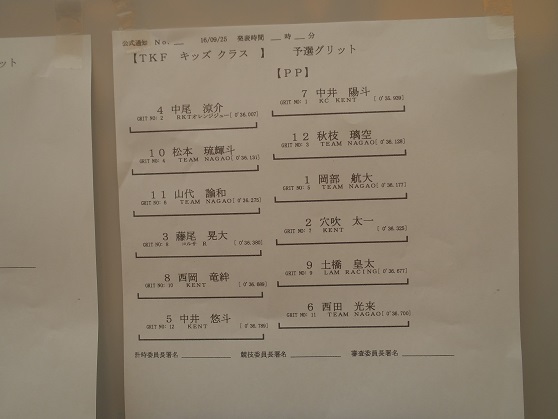 ット
公式通知 No.__ 16/09/25 発表時間 __時__分
【TKF キッズ クラス 】 予選グリット
【PP】
7 中井 陽斗
GRIT NO: 1 KC KENT [0'35.939]
4 中尾 涼介
GRIT NO: 2 RKTオレンジジュー[0'36.007]
12 秋枝 璃空
GRIT NO: 3 TEAM NAGAO[0'36.126]
10 松本 琉輝斗
GRIT NO: 4 TEAM NAGAO[0'36.131]
1 岡部 航大
GRIT NO: 5 TEAM NAGAO[0'36.177]
11 山代 諭和
GRIT NO: 6 TEAM NAGAO[0'36.275]
2 穴吹 太一
GRIT NO: 7 KENT [0'36.325]
3 藤尾 晃大
GRIT NO: 8 R [0'36.380]
9 土橋 皇太
GRIT NO: 9 LAM RACING[0'36.677]
8 西岡 竜絆
GRIT NO: 10 KENT [0'36.689]
6 西田 光来
GRIT NO: 11 TEAM NAGAO[0'36.700]
5 中井 悠斗
GRIT NO: 12 KENT [0'36.789]
計時委員長署名 ________ 競技委員長署名 ________ 審査委員長署名 ________